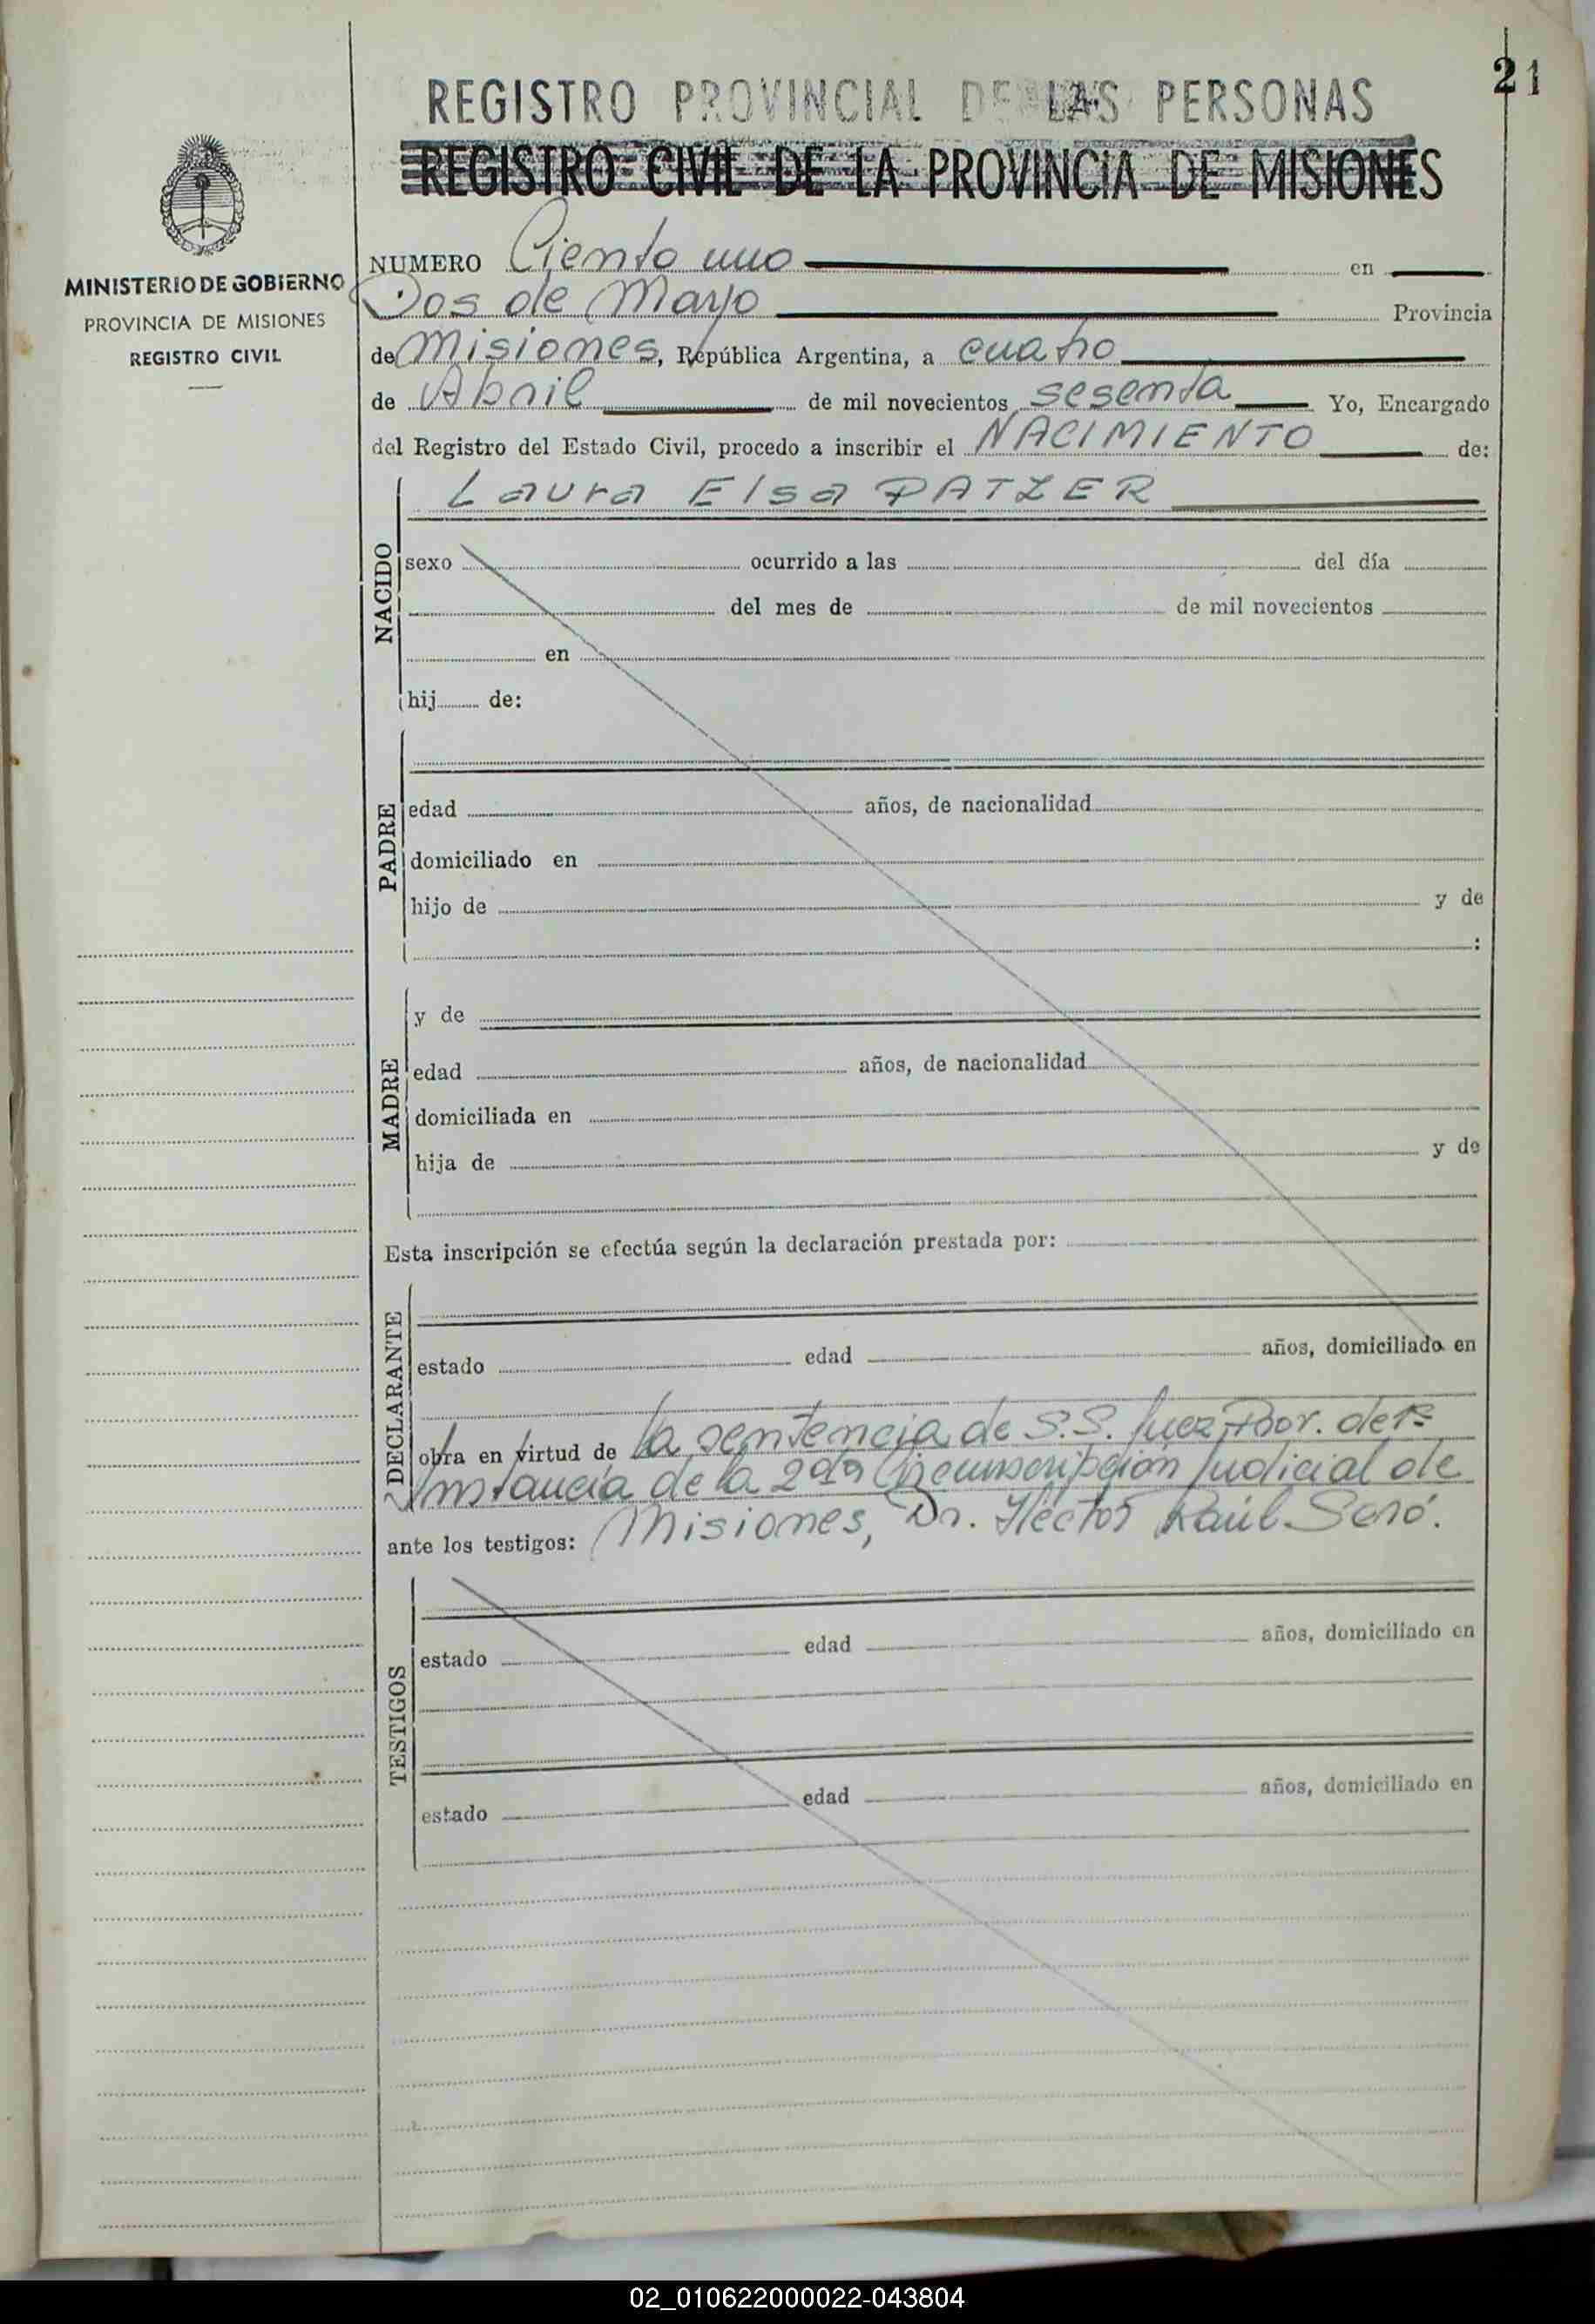 21
REGISTRO PROVINCIAL DE LAS PERSONAS
REGISTRO CIVIL DE LA PROVINCIA DE MISIONES
MINISTERIO DE GOBIERNO
PROVINCIA DE MISIONES
REGISTRO CIVIL
NUMERO Ciento uno en
Dos de Mayo Provincia
de Misiones, República Argentina, a cuatro
de Abril de mil novecientos sesenta Yo, Encargado
del Registro del Estado Civil, procedo a inscribir el NACIMIENTO de:
Laura Elsa PATZER
NACIDO
sexo ocurrido a las del día
del mes de de mil novecientos
en
hij de:
PADRE
edad años, de nacionalidad
domiciliado en
hijo de y de
:
MADRE
y de
edad años, de nacionalidad
domiciliada en
hija de y de
Esta inscripción se efectúa según la declaración prestada por:
DECLARANTE
estado edad años, domiciliado en
obra en virtud de la sentencia de S.S. Juez de 1ª
Instancia de la 2da Circunscripción Judicial de
ante los testigos: Misiones, Dr. Héctor Raúl Seró.
TESTIGOS
estado edad años, domiciliado en
estado edad años, domiciliado en
02_010622000022-043804